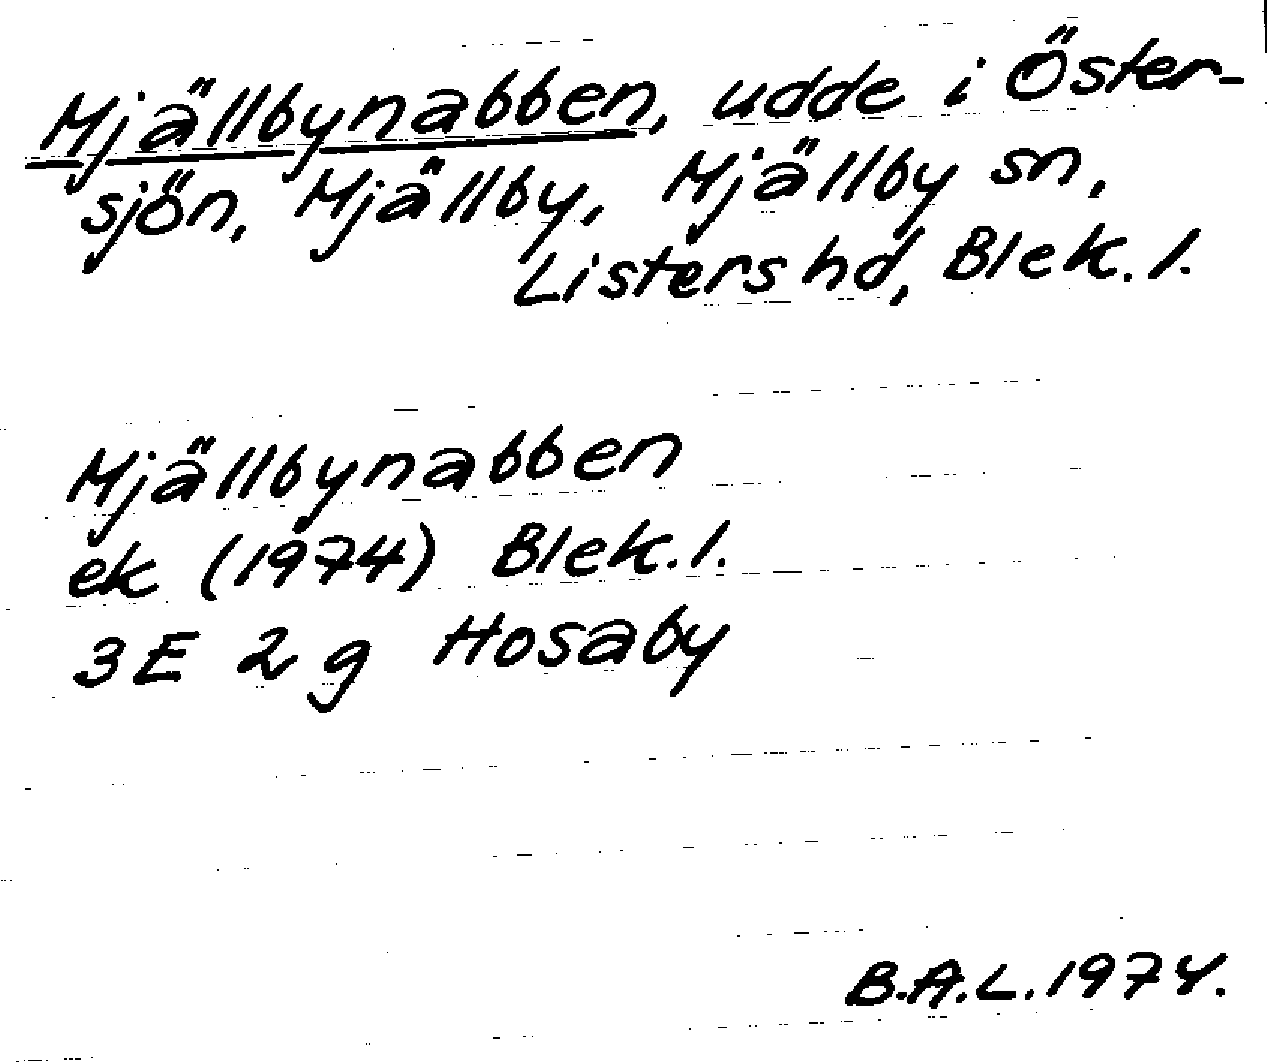 Mjällbynabben, udde i Öster-
sjön, Mjällby, Mjällby sn,
Listers hd, Blek. l.
Mjällbynabben
ek (1974) Blek. l.
3E 2g Hosaby
B.A.L. 1974.